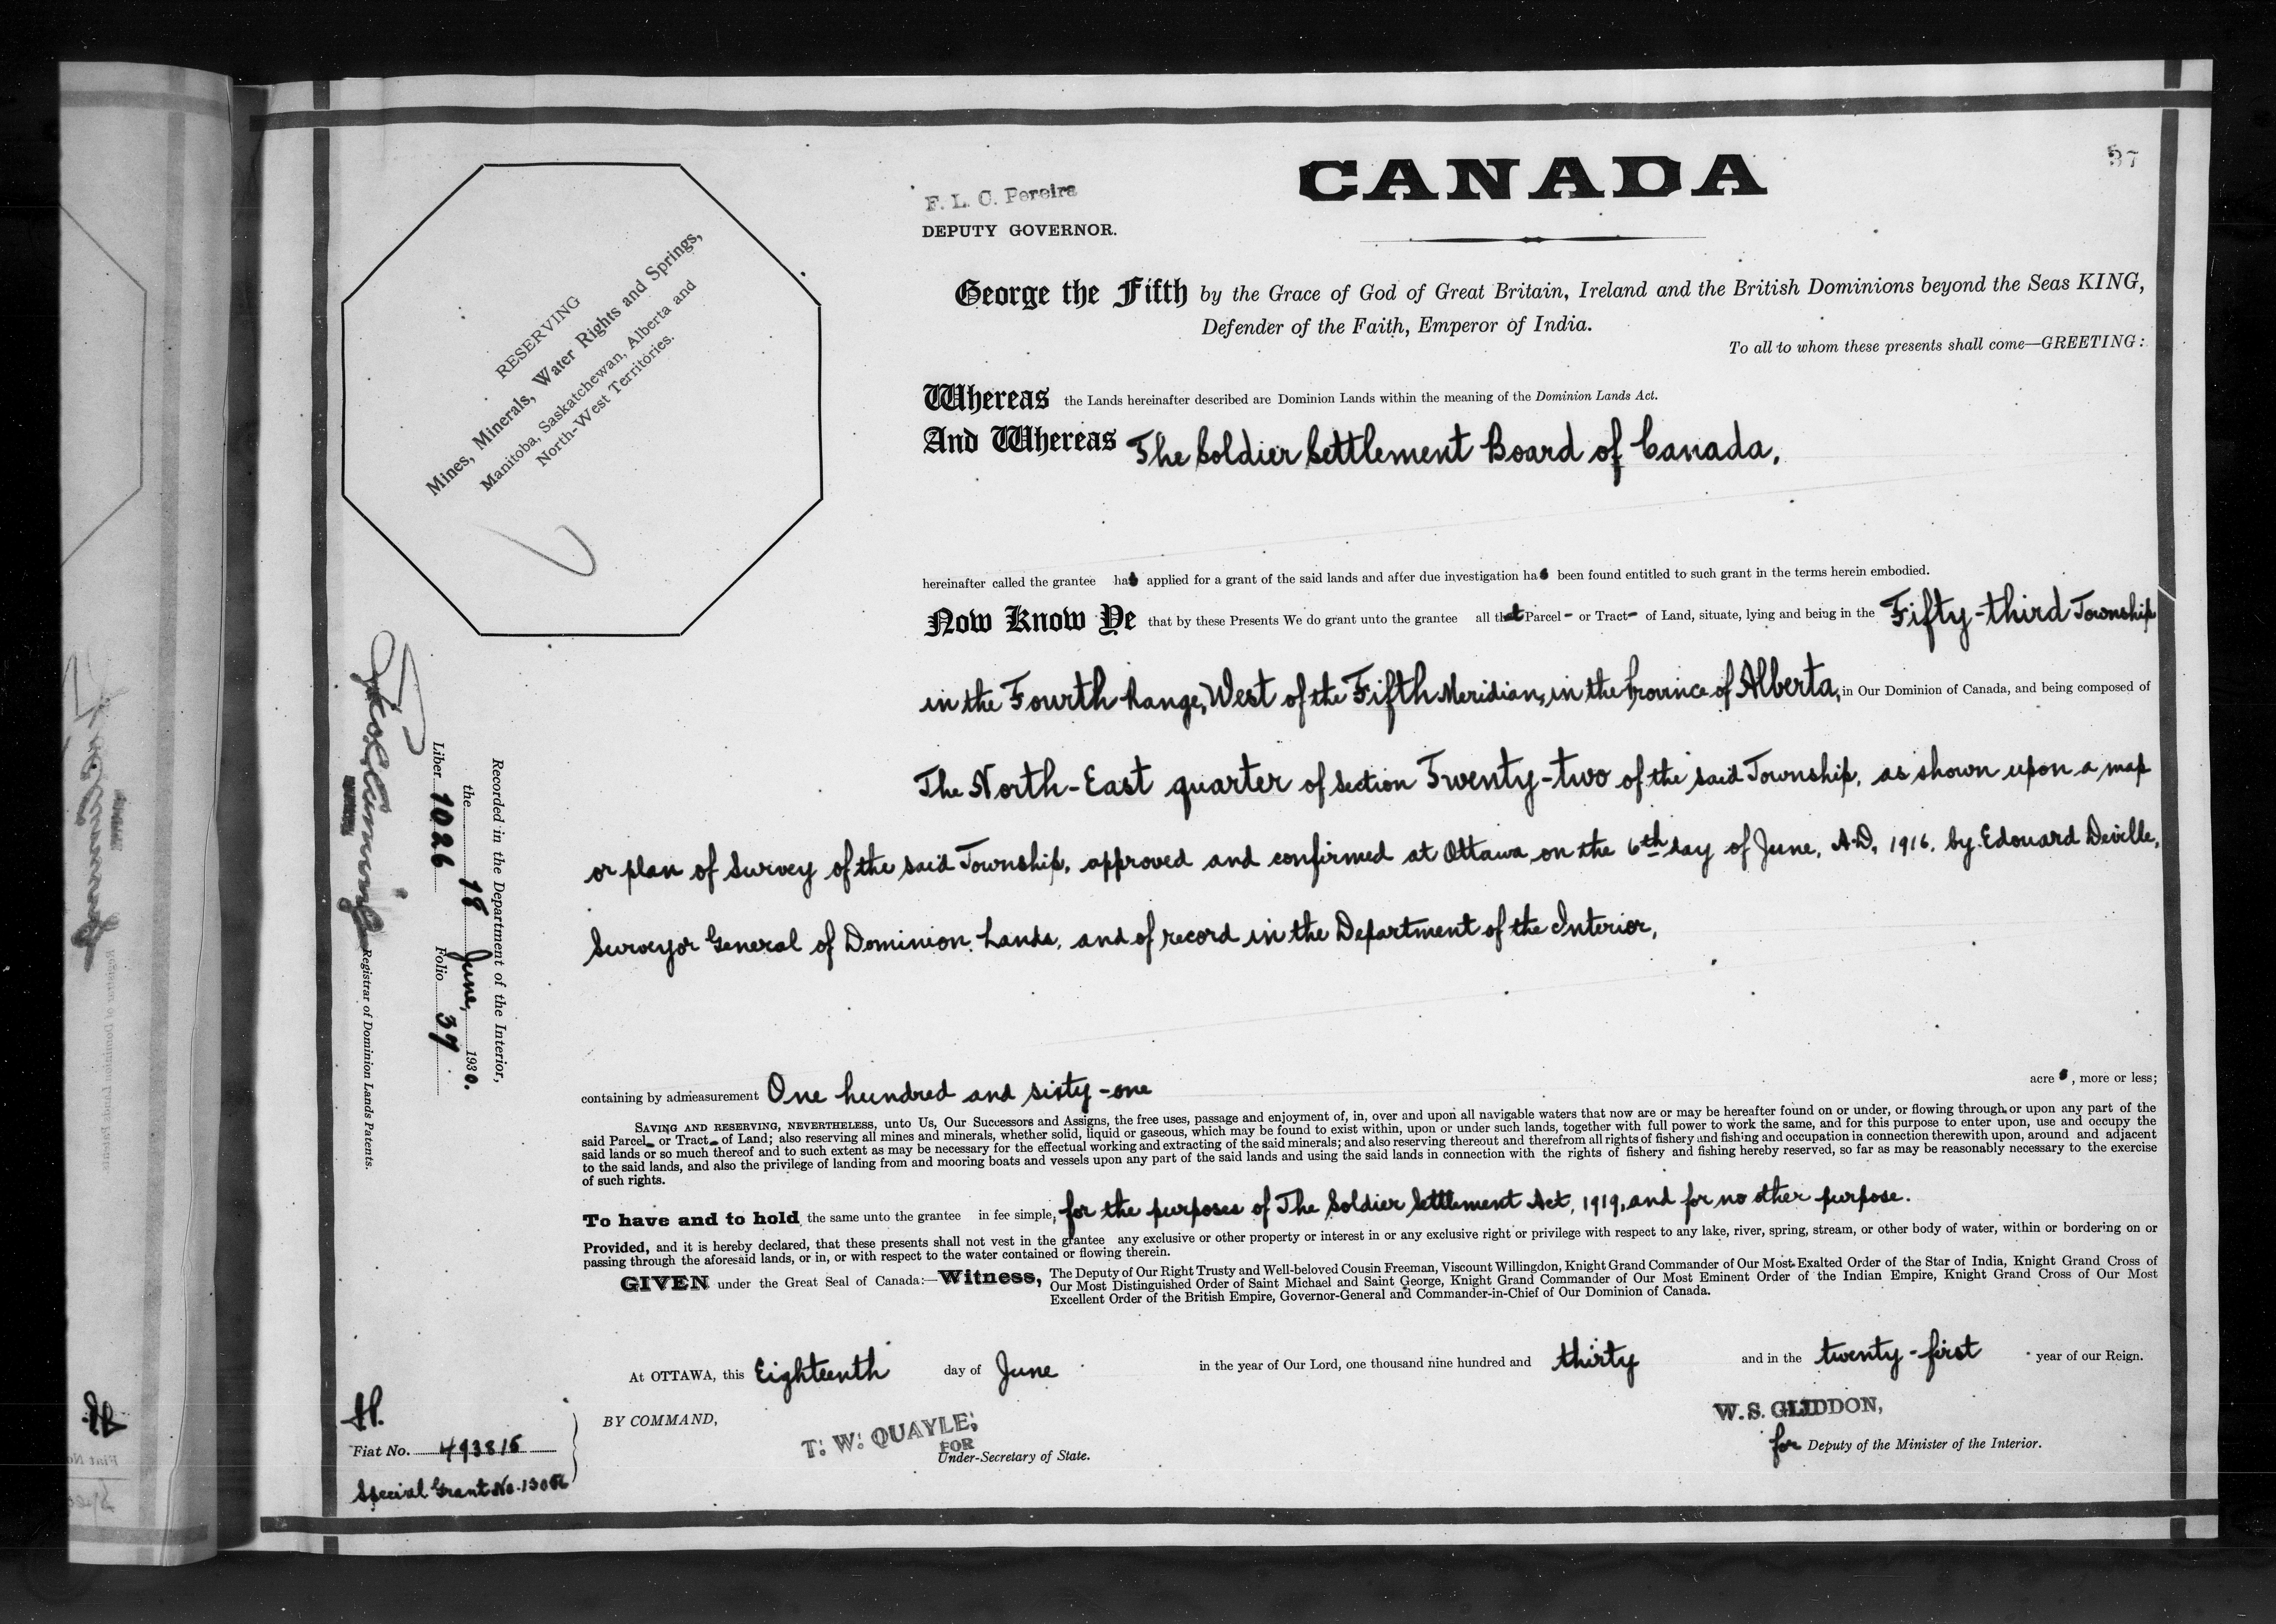 37
CANADA
F. L. C. Pereira
DEPUTY GOVERNOR.
RESERVING
Mines, Minerals, Water Rights and Springs,
Manitoba, Saskatchewan, Alberta and
North-West Territories.
George the Fifth by the Grace of God of Great Britain, Ireland and the British Dominions beyond the Seas KING,
Defender of the Faith, Emperor of India.
To all to whom these presents shall come—GREETING:
Whereas the Lands hereinafter described are Dominion Lands within the meaning of the Dominion Lands Act.
And Whereas The Soldier Settlement Board of Canada,
hereinafter called the grantee has applied for a grant of the said lands and after due investigation has been found entitled to such grant in the terms herein embodied.
Now Know Ye that by these Presents We do grant unto the grantee all that Parcel - or Tract - of Land, situate, lying and being in the Fifty-third Township
in the Fourth Range, West of the Fifth Meridian, in the Province of Alberta, in Our Dominion of Canada, and being composed of
The North-East quarter of section Twenty-two of the said Township, as shown upon a map
or plan of survey of the said Township, approved and confirmed at Ottawa, on the 6th day of June, A.D. 1916, by Edouard Deville,
Surveyor General of Dominion Lands, and of record in the Department of the Interior,
containing by admeasurement One hundred and sixty-one acres, more or less;
SAVING AND RESERVING, NEVERTHELESS, unto Us, Our Successors and Assigns, the free uses, passage and enjoyment of, in, over and upon all navigable waters that now are or may be hereafter found on or under, or flowing through or upon any part of the
said Parcel - or Tract - of Land; also reserving all mines and minerals, whether solid, liquid or gaseous, which may be found to exist within, upon or under such lands, together with full power to work the same, and for this purpose to enter upon, use and occupy the
said lands or so much thereof and to such extent as may be necessary for the effectual working and extracting of the said minerals; and also reserving thereout and therefrom all rights of fishery and fishing and occupation in connection therewith upon, around and adjacent
to the said lands, and also the privilege of landing from and mooring boats and vessels upon any part of the said lands and using the said lands in connection with the rights of fishery and fishing hereby reserved, so far as may be reasonably necessary to the exercise
of such rights.
To have and to hold the same unto the grantee in fee simple, for the purposes of The Soldier Settlement Act, 1919, and for no other purpose.
Provided, and it is hereby declared, that these presents shall not vest in the grantee any exclusive or other property or interest in or any exclusive right or privilege with respect to any lake, river, spring, stream, or other body of water, within or bordering on or
passing through the aforesaid lands, or in, or with respect to the water contained or flowing therein.
GIVEN under the Great Seal of Canada:—Witness, The Deputy of Our Right Trusty and Well-beloved Cousin Freeman, Viscount Willingdon, Knight Grand Commander of Our Most Exalted Order of the Star of India, Knight Grand Cross of
Our Most Distinguished Order of Saint Michael and Saint George, Knight Grand Commander of Our Most Eminent Order of the Indian Empire, Knight Grand Cross of Our Most
Excellent Order of the British Empire, Governor-General and Commander-in-Chief of Our Dominion of Canada.
At OTTAWA, this Eighteenth day of June in the year of Our Lord, one thousand nine hundred and thirty and in the twenty-first year of our Reign.
BY COMMAND,
T. W. QUAYLE,
FOR
Under-Secretary of State.
W. S. GLIDDON,
for Deputy of the Minister of the Interior.
Recorded in the Department of the Interior,
the 18 June, 1930.
Liber 1026 Folio 37
Registrar of Dominion Lands Patents.
H.
Fiat No. 493815
Special Grant No.